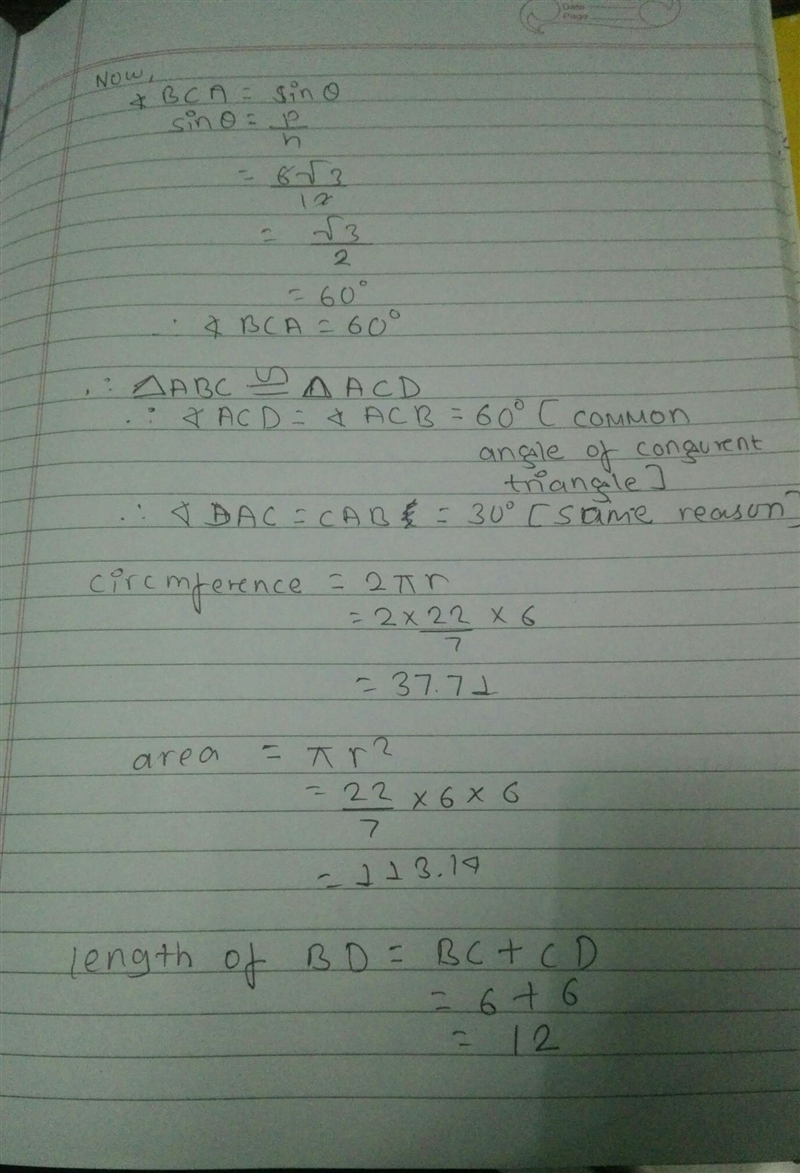 Date
Page
Now,
∡ BCA = sinθ
sinθ = p/h
= 6√3/12
= √3/2
= 60°
∴ ∡ BCA = 60°
∴ △ABC ≅ △ ACD
∴ ∡ ACD = ∡ ACB = 60° [ common
angle of congurent
triangle]
∴ ∡ DAC = CAB = 30° [same reason]
circmference = 2πr
= 2 × 22/7 × 6
= 37.71
area = πr²
= 22/7 × 6 × 6
= 113.14
length of BD = BC + CD
= 6 + 6
= 12